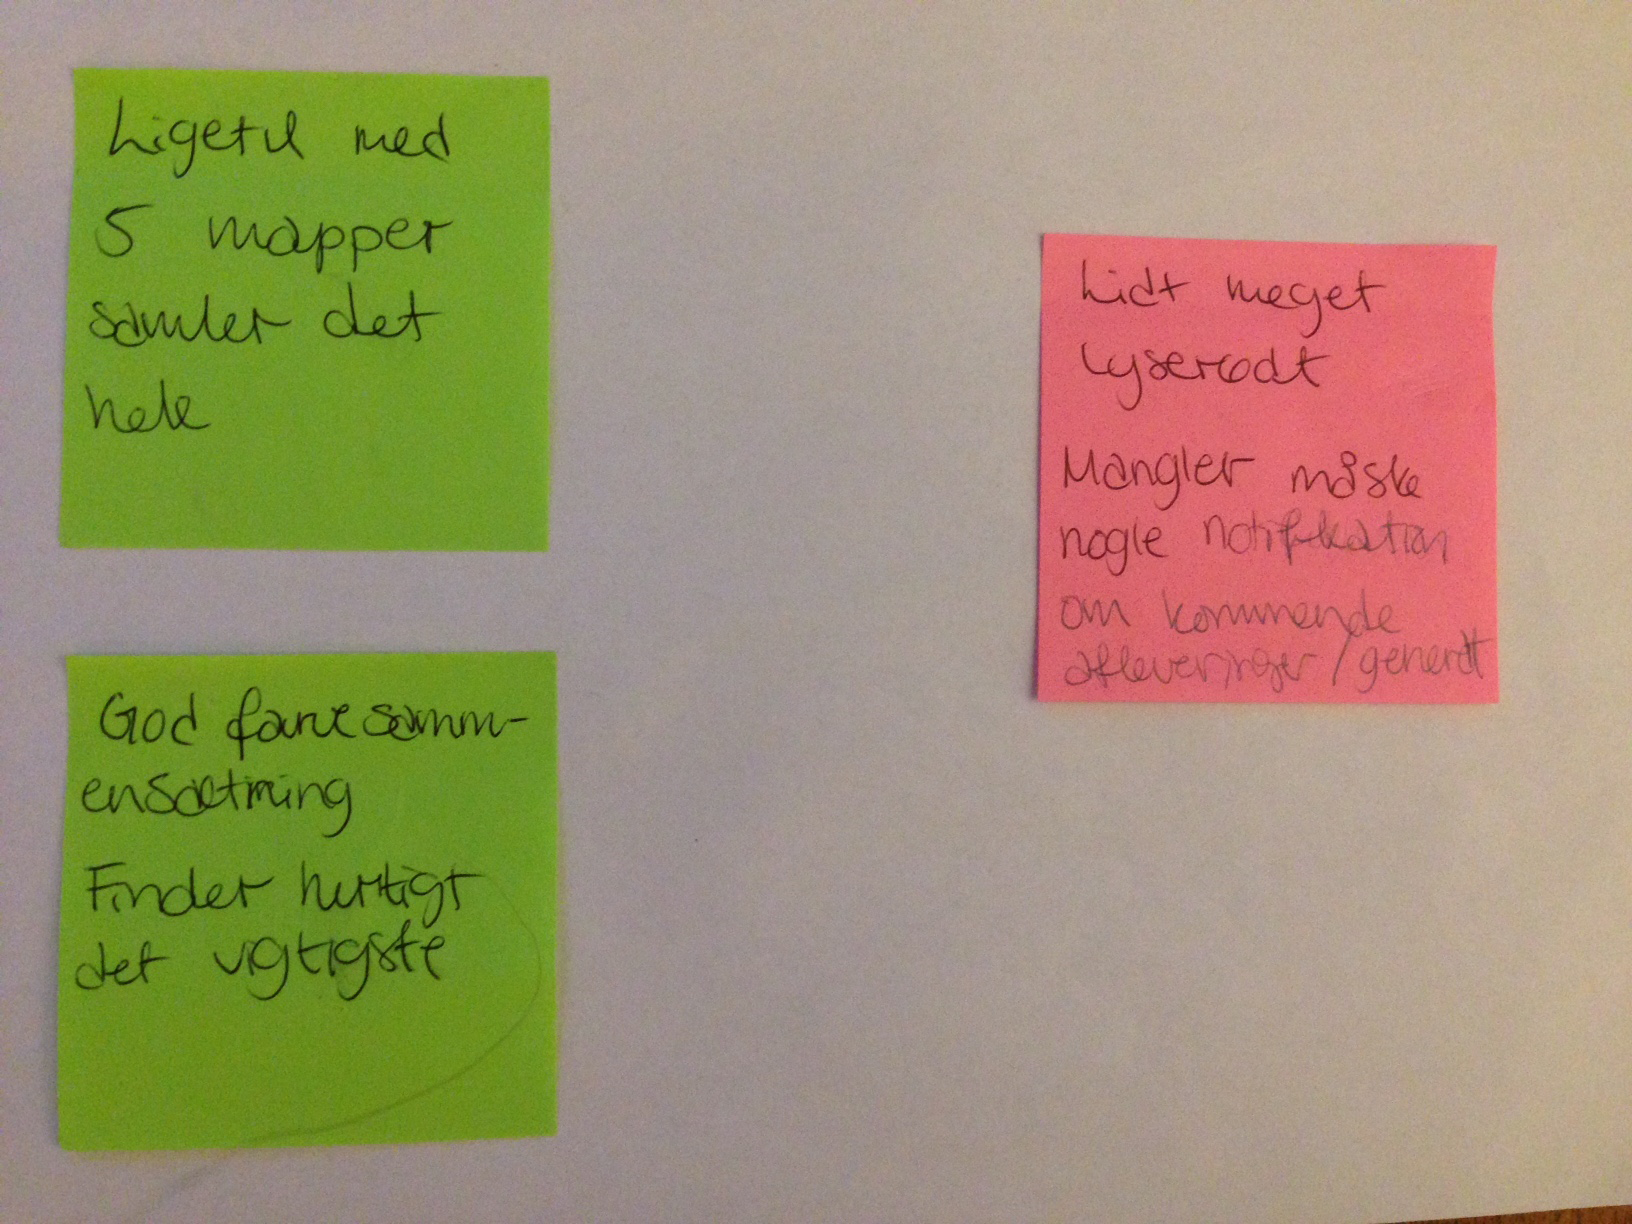 Ligetil med
5 mapper
samler det
hele
God farvesamm-
ensætning
Finder hurtigt
det vigtigste
Lidt meget
lyserødt
Mangler måske
nogle notifikation
om kommende
afleveringer / generelt